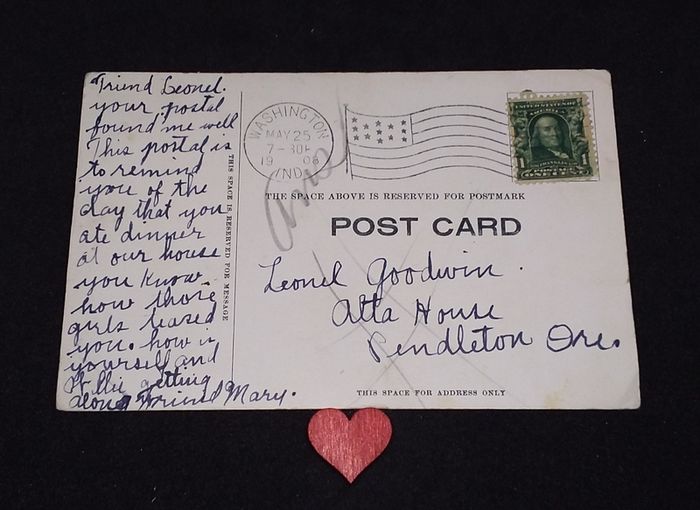 Friend Leonel.
your postal
found me well
This postal is
to remind
you of the
day that you
ate dinner
at our house
you know
how those
girls teased
you. how is
yourself and
getting
along Friend Mary.
THIS SPACE IS RESERVED FOR MESSAGE
WASHINGTON
MAY 25
7-30P
1908
IND.
UNITED STATES OF AMERICA
FRANKLIN
1 POSTAGE 1
ONE CENT
THE SPACE ABOVE IS RESERVED FOR POSTMARK
POST CARD
Leonel Goodwin.
Atta House
Pendleton Ore.
THIS SPACE FOR ADDRESS ONLY